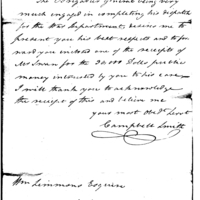 The Brigadier General being very
much engaged in completing his dispatches
for the War Department, desires me to
present you his best respects and to for-
ward you inclosed one of the receipts of
Mr Swan for the 30,000 Dolls public
money intrusted by you to his care —
I will thank you to acknowledge
the receipt of this and believe me
your most Obdt Servt
Campbell Smith
Wm Simmons Esquire